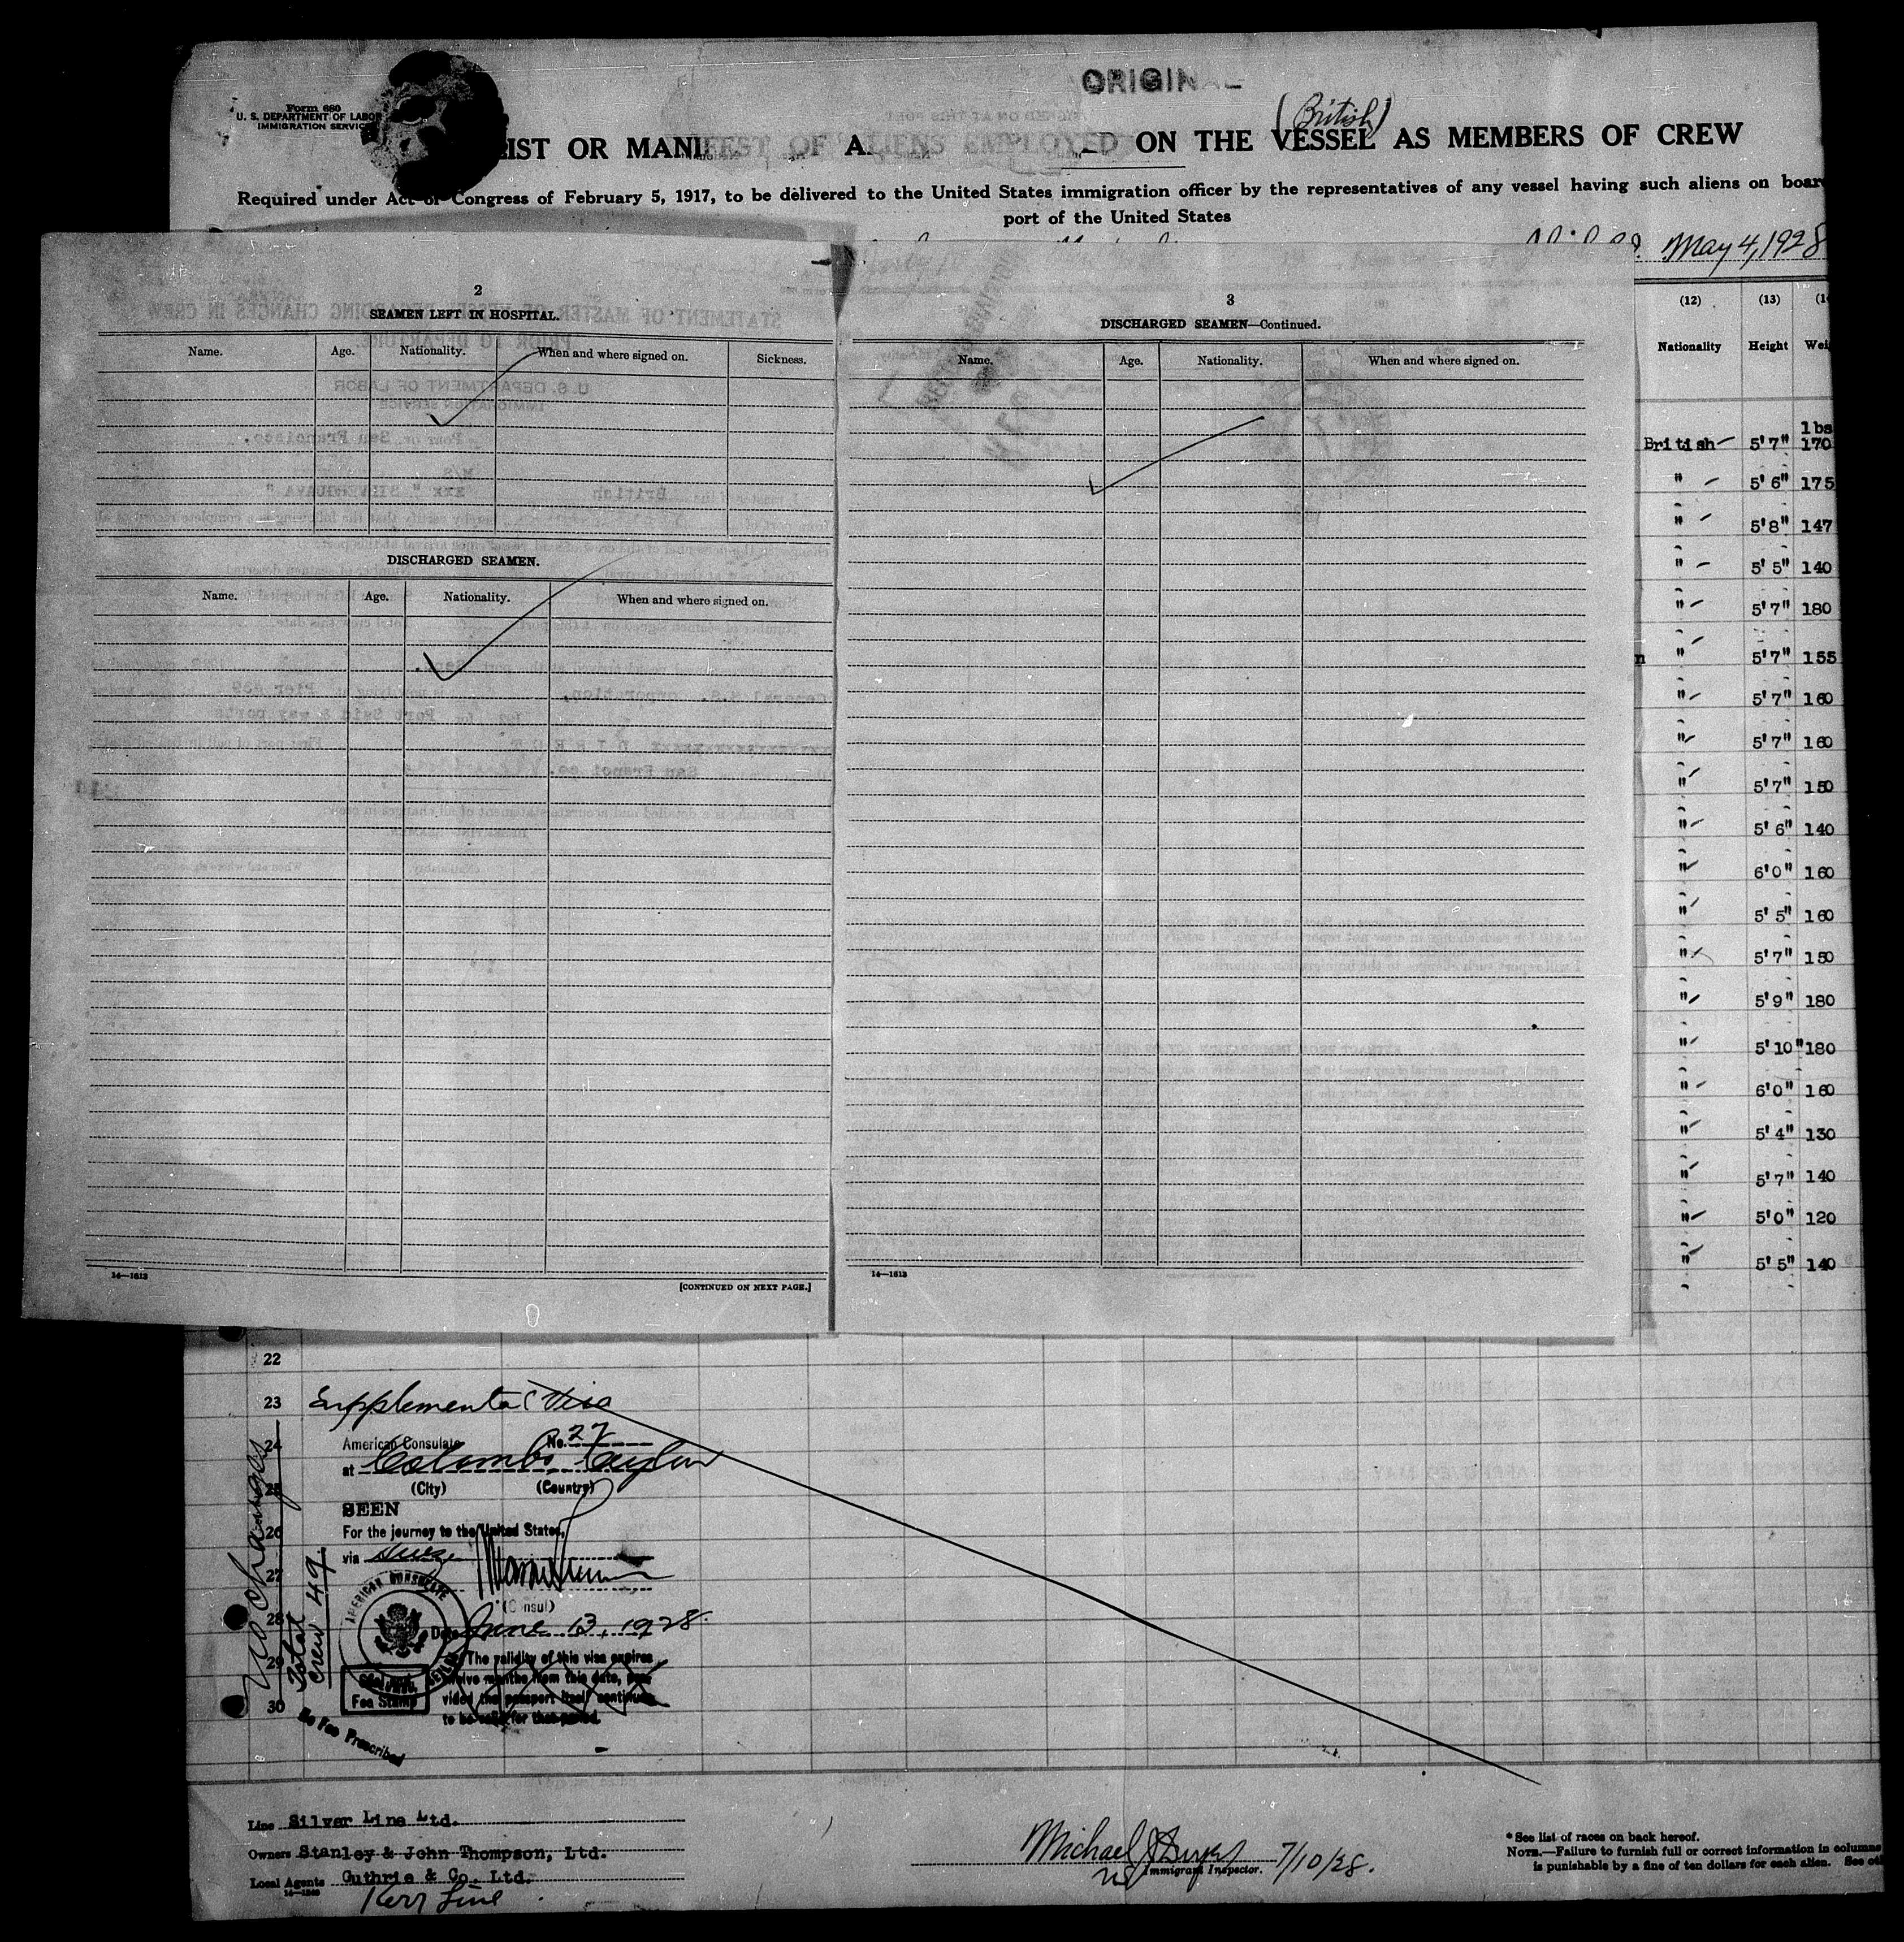 ORIGIN
Form 680
U. S. DEPARTMENT OF LABOR
IMMIGRATION SERVICE
(British)
LIST OR MANIFEST OF ALIENS EMPLOYED ON THE VESSEL AS MEMBERS OF CREW
Required under Act of Congress of February 5, 1917, to be delivered to the United States immigration officer by the representatives of any vessel having such aliens on board
port of the United States
May 4, 1928
2
SEAMEN LEFT IN HOSPITAL.
Name. Age. Nationality. When and where signed on. Sickness.
DISCHARGED SEAMEN.
Name. Age. Nationality. When and where signed on.
14—1613
[CONTINUED ON NEXT PAGE.]
3
DISCHARGED SEAMEN—Continued.
Name. Age. Nationality. When and where signed on.
14—1613
(12) (13)
Nationality Height
lbs
British 5'7" 170
" 5'6" 175
" 5'8" 147
" 5'5" 140
" 5'7" 180
" 5'7" 155
" 5'7" 160
" 5'7" 160
" 5'7" 150
" 5'6" 140
" 6'0" 160
" 5'5" 160
" 5'7" 150
" 5'9" 180
" 5'10" 180
" 6'0" 160
" 5'4" 130
" 5'7" 140
" 5'0" 120
" 5'5" 140
22
23 Supplemental Visa
24 American Consulate No. 27
at Colombo, Ceylon
25 (City) (Country)
SEEN
26 For the journey to the United States,
via Suez
27
(Consul)
28 Date June 13, 1928.
29 The validity of this visa expires
twelve months from this date, pro-
30 vided the passport itself continues
to be valid for that period.
AMERICAN CONSULATE
Fee Stamp
No Fee Prescribed
No changes
Total
crew 49.
Line Silver Line Ltd.
Owners Stanley & John Thompson, Ltd.
Local Agents Guthrie & Co. Ltd.
Kerr Line
Michael
Immigrant Inspector. 7/10/28.
* See list of races on back hereof.
NOTE.—Failure to furnish full or correct information in columns
is punishable by a fine of ten dollars for each alien. See